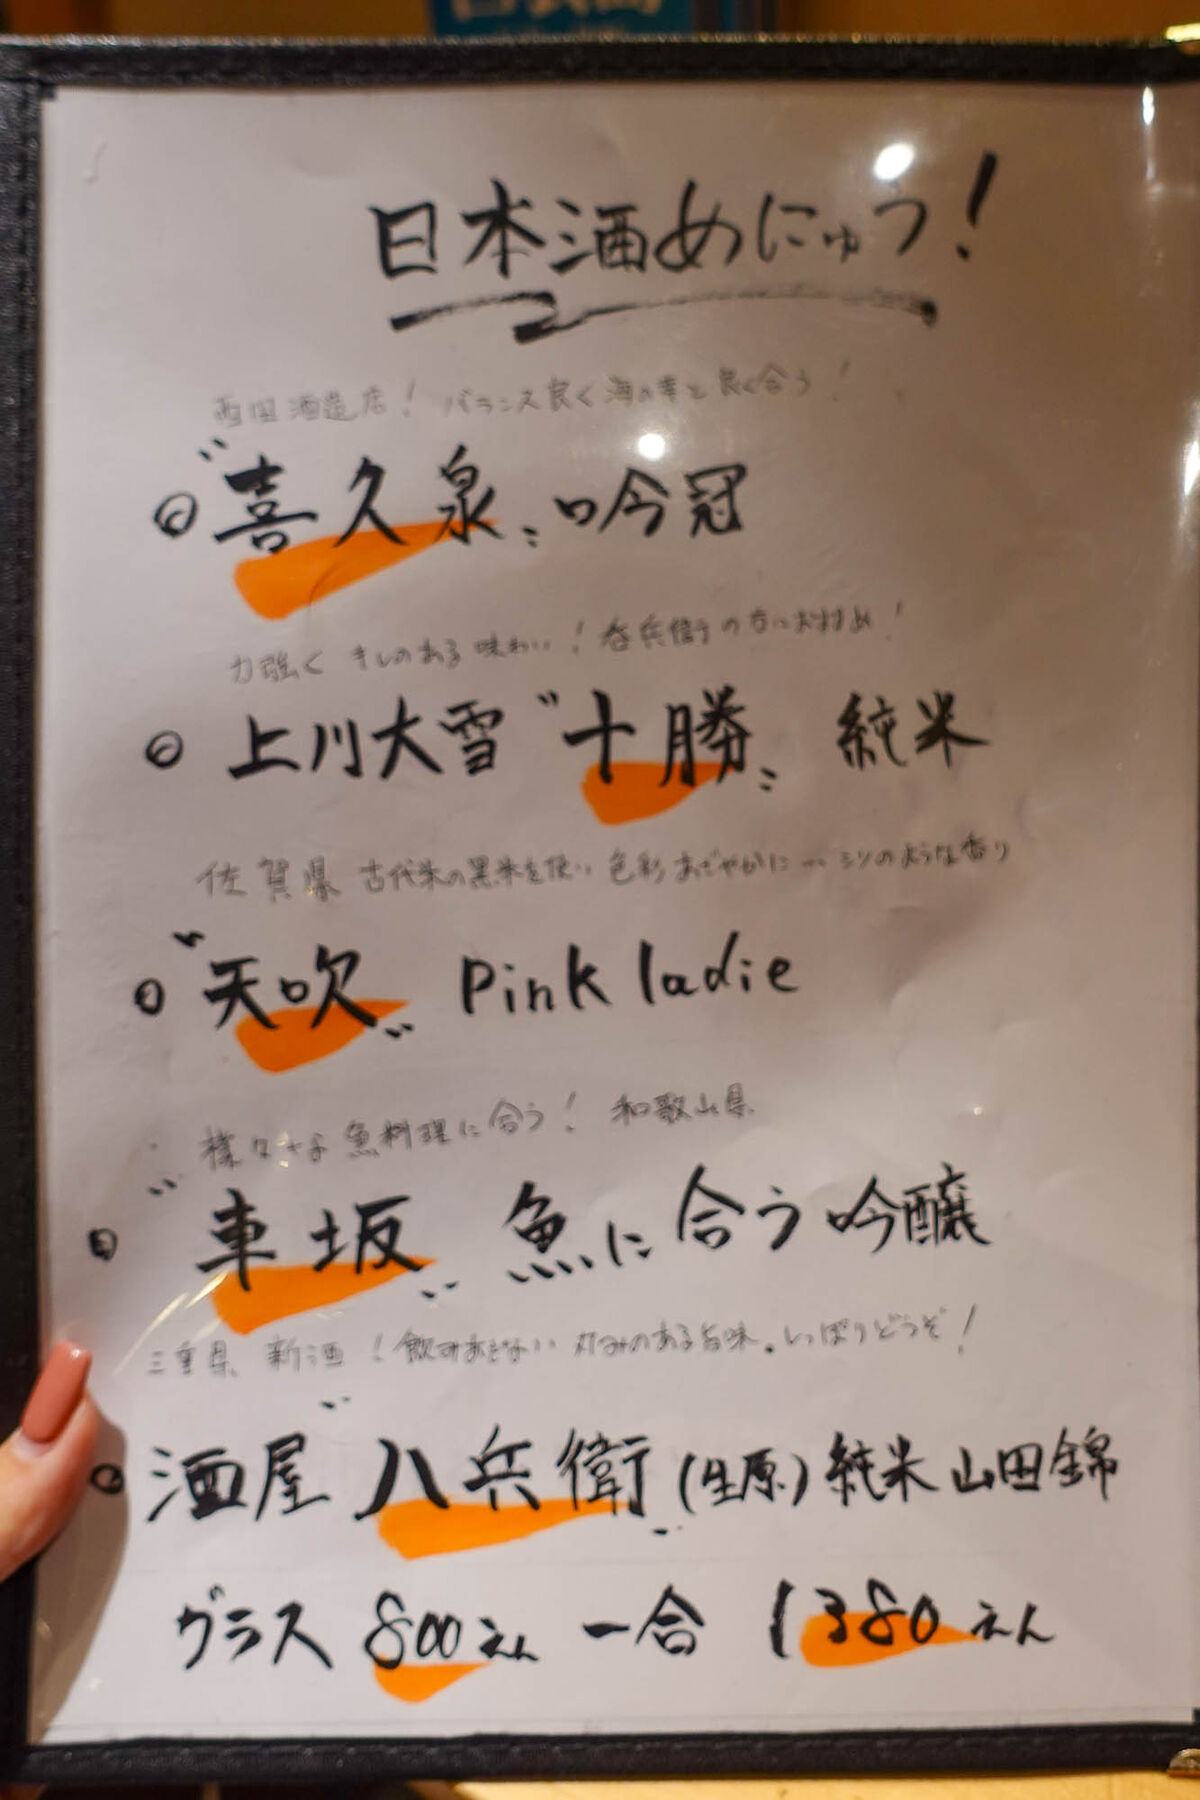 日本酒めにゅう!
西田酒造店! バランス良く海の幸と良く合う!
◎"喜久泉" 吟冠
力強く キレのある味わい! 呑兵衛の方におすすめ!
◎上川大雪"十勝" 純米
佐賀県 古代米の黒米を使い 色彩あざやかに… ミツのような香り
◎"天吹" Pink ladie
様々な魚料理に合う! 和歌山県
◎"車坂" 魚に合う吟醸
三重県 新酒! 飲みあきない 丸みのある旨味。しっぽりどうぞ!
◎酒屋"八兵衛"(生原)純米 山田錦
グラス 800えん 一合 1380えん